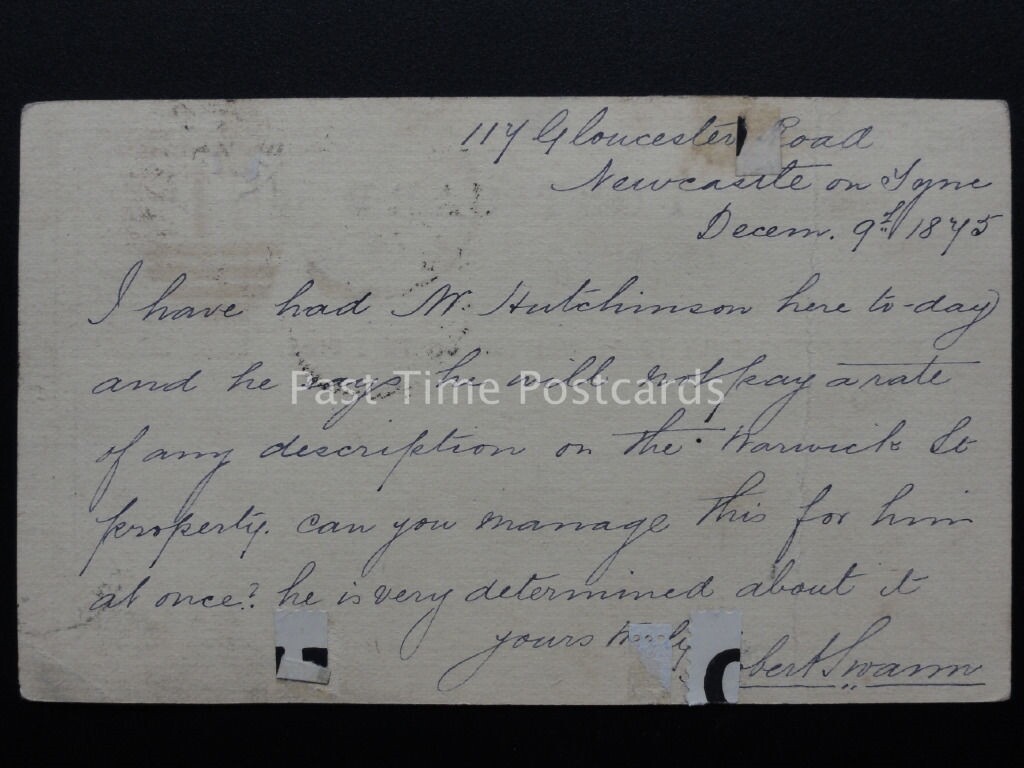 117 Gloucester Road
Newcastle on Tyne
Decem. 9th 1875
I have had Mr. Hutchinson here to-day
and he says he will not pay a rate
of any description on the Warwick St
property. can you manage this for him
at once? he is very determined about it
yours
bert Swann
Past Time Postcards